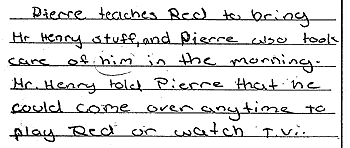 Pierre teaches Red to bring
Mr. Henry stuff, and Pierre also took
care of him in the morning.
Mr. Henry told Pierre that he
could come over anytime to
play Red or watch T.V..